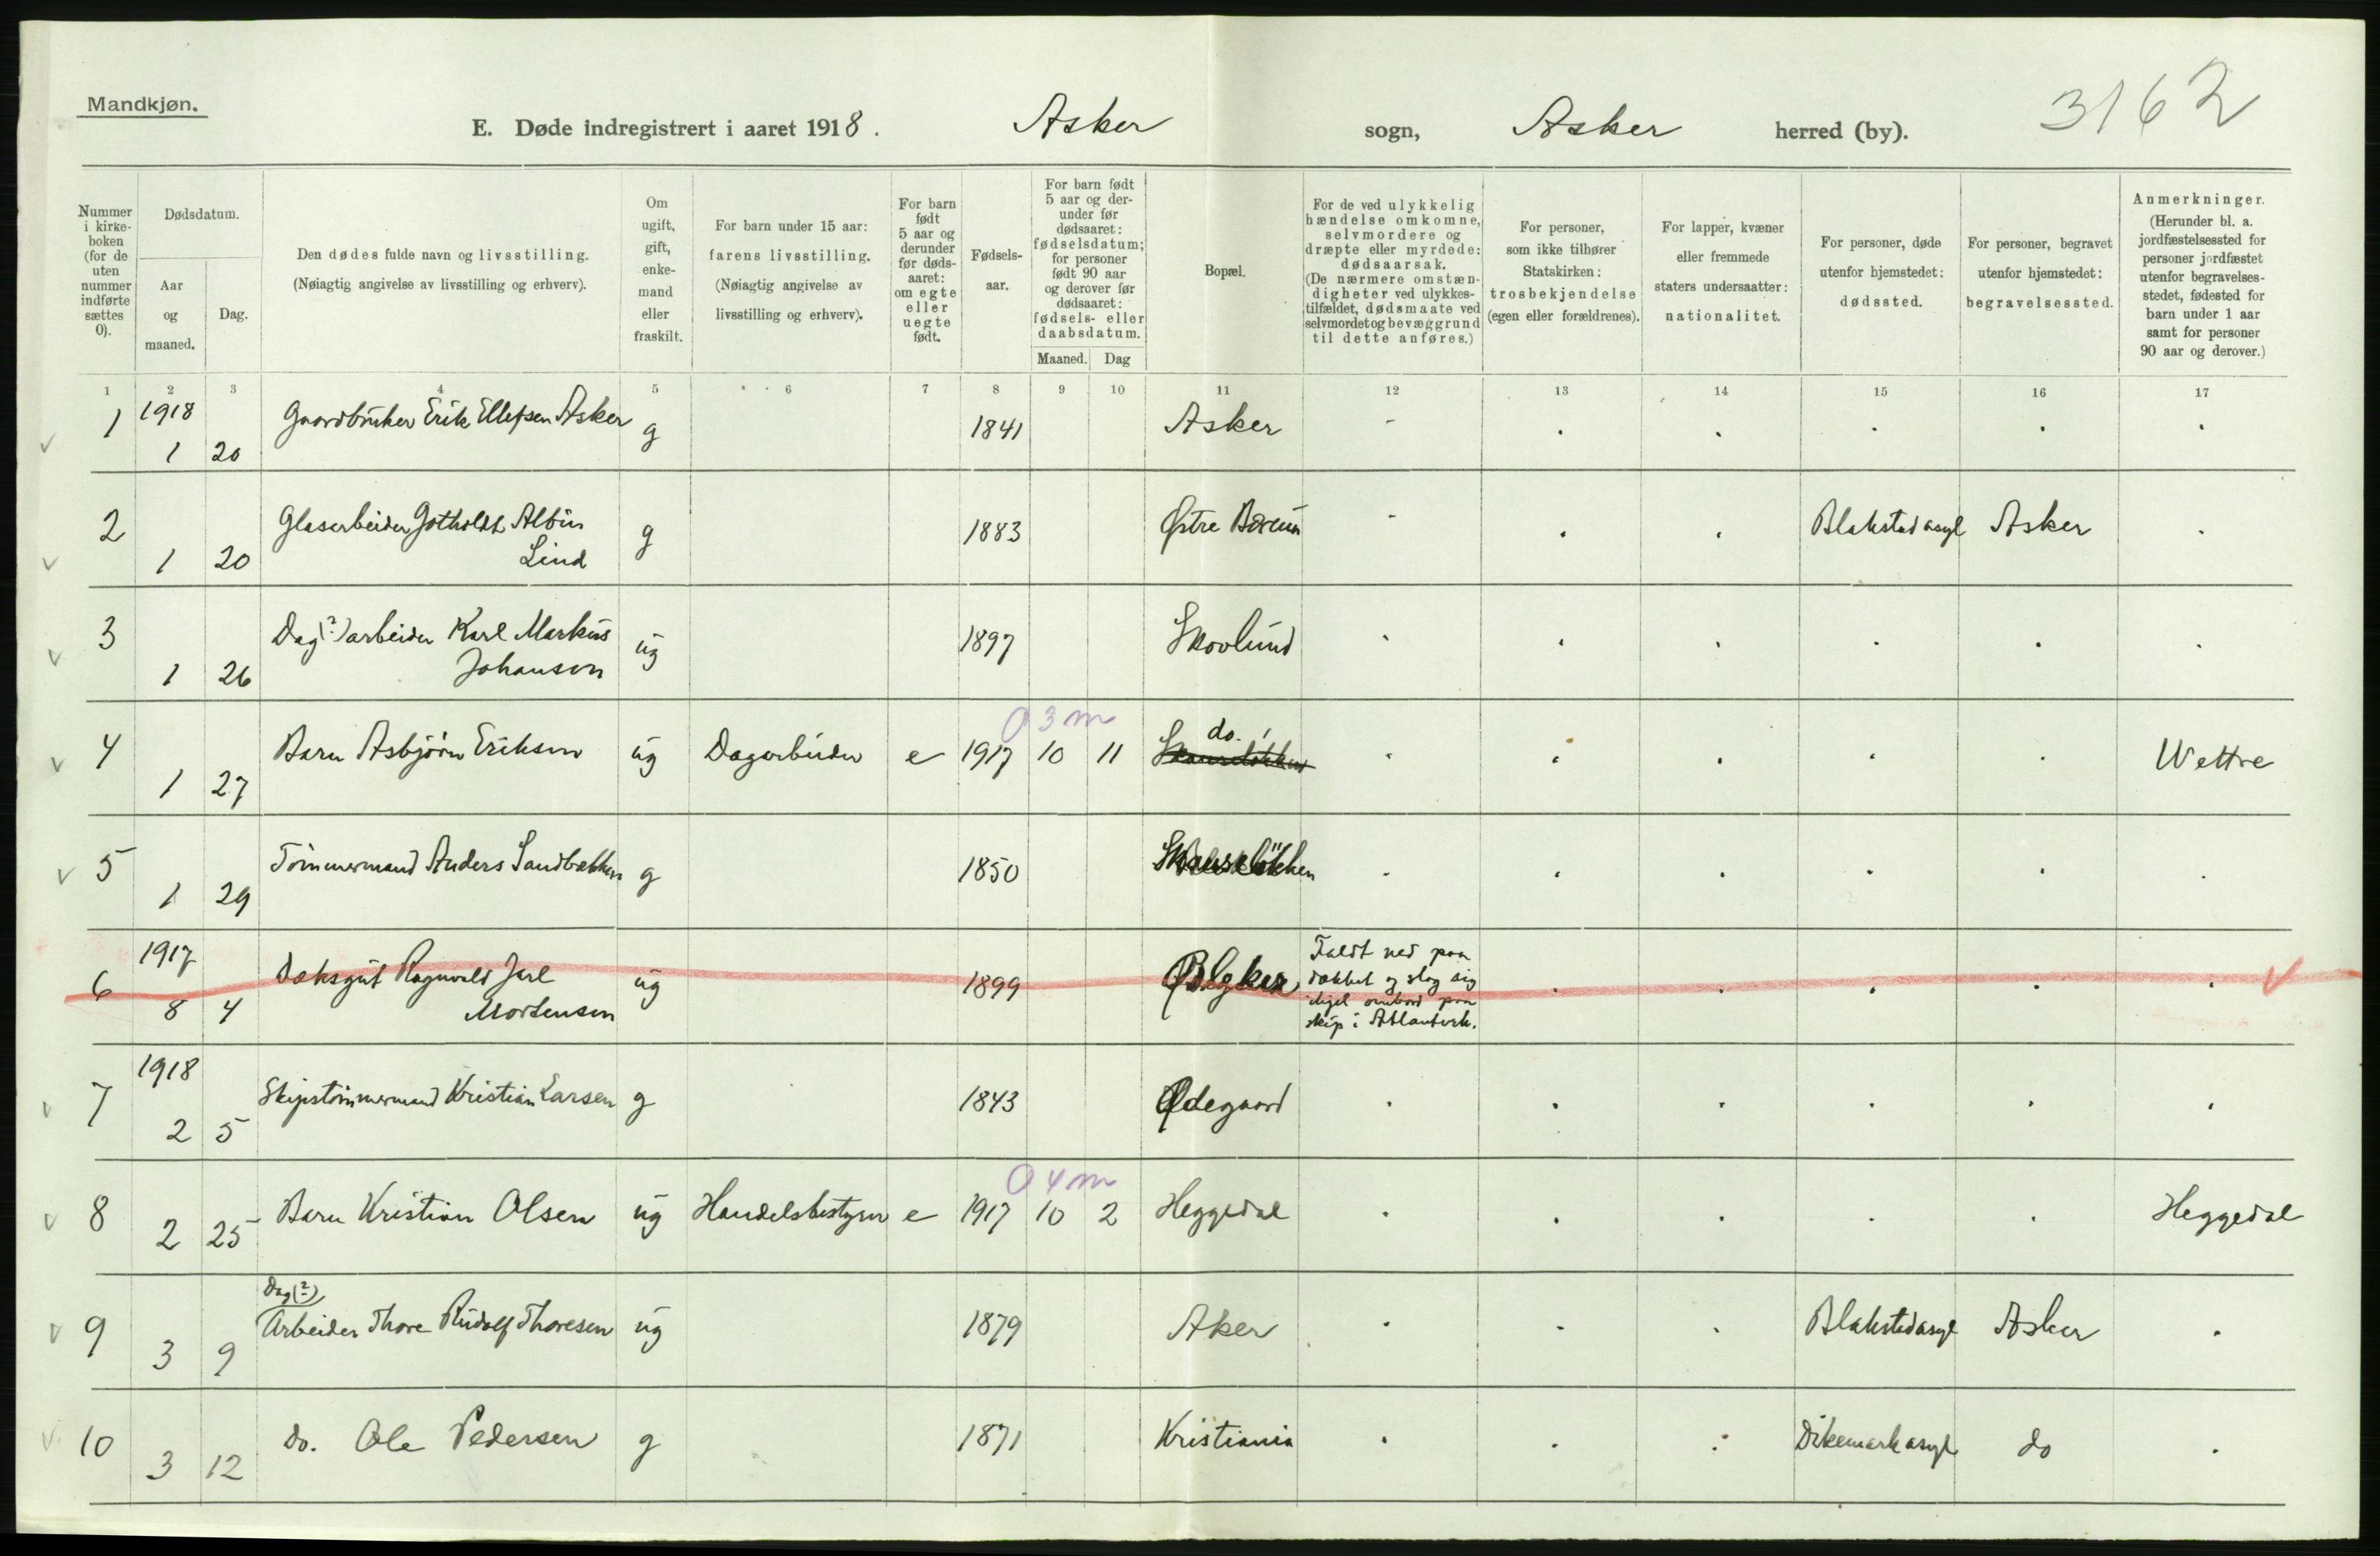 Mandkjøn.
E. Døde indregistrert i aaret 1918. Asker sogn, Asker herred (by). 3162
Nummer i kirkeboken (for de uten nummer indførte sættes 0).
Dødsdatum.
Aar og maaned.
Dag.
Den dødes fulde navn og livsstilling.
(Nøiagtig angivelse av livsstilling og erhverv).
Om ugift, gift, enkemand eller fraskilt.
For barn under 15 aar:
farens livsstilling.
(Nøiagtig angivelse av livsstilling og erhverv).
For barn født 5 aar og derunder før dødsaaret: om egte eller uegte født.
Fødselsaar.
For barn født 5 aar og derunder før dødsaaret: fødselsdatum; for personer født 90 aar og derover før dødsaaret: fødsels- eller daabsdatum.
Maaned. Dag
Bopæl.
For de ved ulykkelig hændelse omkomne, selvmordere og dræpte eller myrdede: dødsaarsak.
(De nærmere omstændigheter ved ulykkestilfældet, dødsmaate ved selvmordet og bevæggrund til dette anføres.)
For personer, som ikke tilhører Statskirken: trosbekjendelse (egen eller forældrenes).
For lapper, kvæner eller fremmede staters undersaatter: nationalitet.
For personer, døde utenfor hjemstedet: dødssted.
For personer, begravet utenfor hjemstedet: begravelsessted.
Anmerkninger.
(Herunder bl. a. jordfæstelsessted for personer jordfæstet utenfor begravelsesstedet, fødested for barn under 1 aar samt for personer 90 aar og derover.)
1 2 3 4 5 6 7 8 9 10 11 12 13 14 15 16 17
1 1918 1 20 Gaardbruker Erik Ellefsen Asker g 1841 Asker
2 1 20 Glasarbeider Gotholdt Albin Lind g 1883 Østre Bærum Blakstad asyl Asker
3 1 26 Dag(?)arbeider Karl Markus Johansen ug 1897 Skovlund
0 3 m
4 1 27 Barn Asbjörn Eriksen ug Dagarbeider e 1917 10 11 do. Wettre
5 1 29 Tömmermand Anders Sandbækken g 1850 Skauseløkken
6 1917 8 4 Dæksgut Ragnvald Jarl Mortensen ug 1899 Faldt ned paa dækket og slog sig ihjel ombord paa skip i Atlanterh.
7 1918 2 5 Skipstömmermand Kristian Larsen g 1843 Ødegaard
0 4 m
8 2 25 Barn Kristian Olsen ug Handelsbestyrer e 1917 10 2 Heggedal Heggedal
Dag(?)
9 3 9 Arbeider Thore Rudolf Thoresen ug 1879 Aker Blakstad asyl Asker
10 3 12 do. Ole Pedersen g 1871 Kristiania Dikemark asyl do